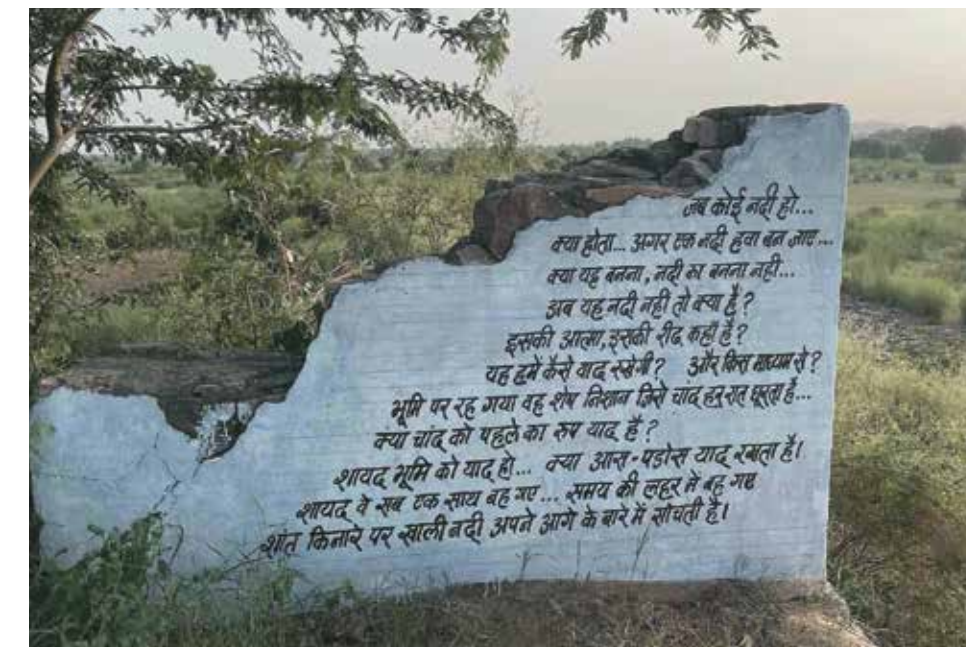 जब कोई नदी हो...
क्या होता... अगर एक नदी हवा बन जाए...
क्या यह बनना, नदी का बनना नहीं...
अब यह नदी नहीं तो क्या है?
इसकी आत्मा, इसकी रीढ़ कहाँ है?
यह हमें कैसे याद रखेगी? और किस माध्यम से?
भूमि पर रह गया वह शेष निशान जिसे चांद हर रात घूरता है...
क्या चांद को पहले का रूप याद है?
शायद भूमि को याद हो... क्या आस-पडोस याद रखता है।
शायद वे सब एक साथ बह गए... समय की लहर में बह गए
शांत किनारे पर खाली नदी अपने आगे के बारे में सोचती है।